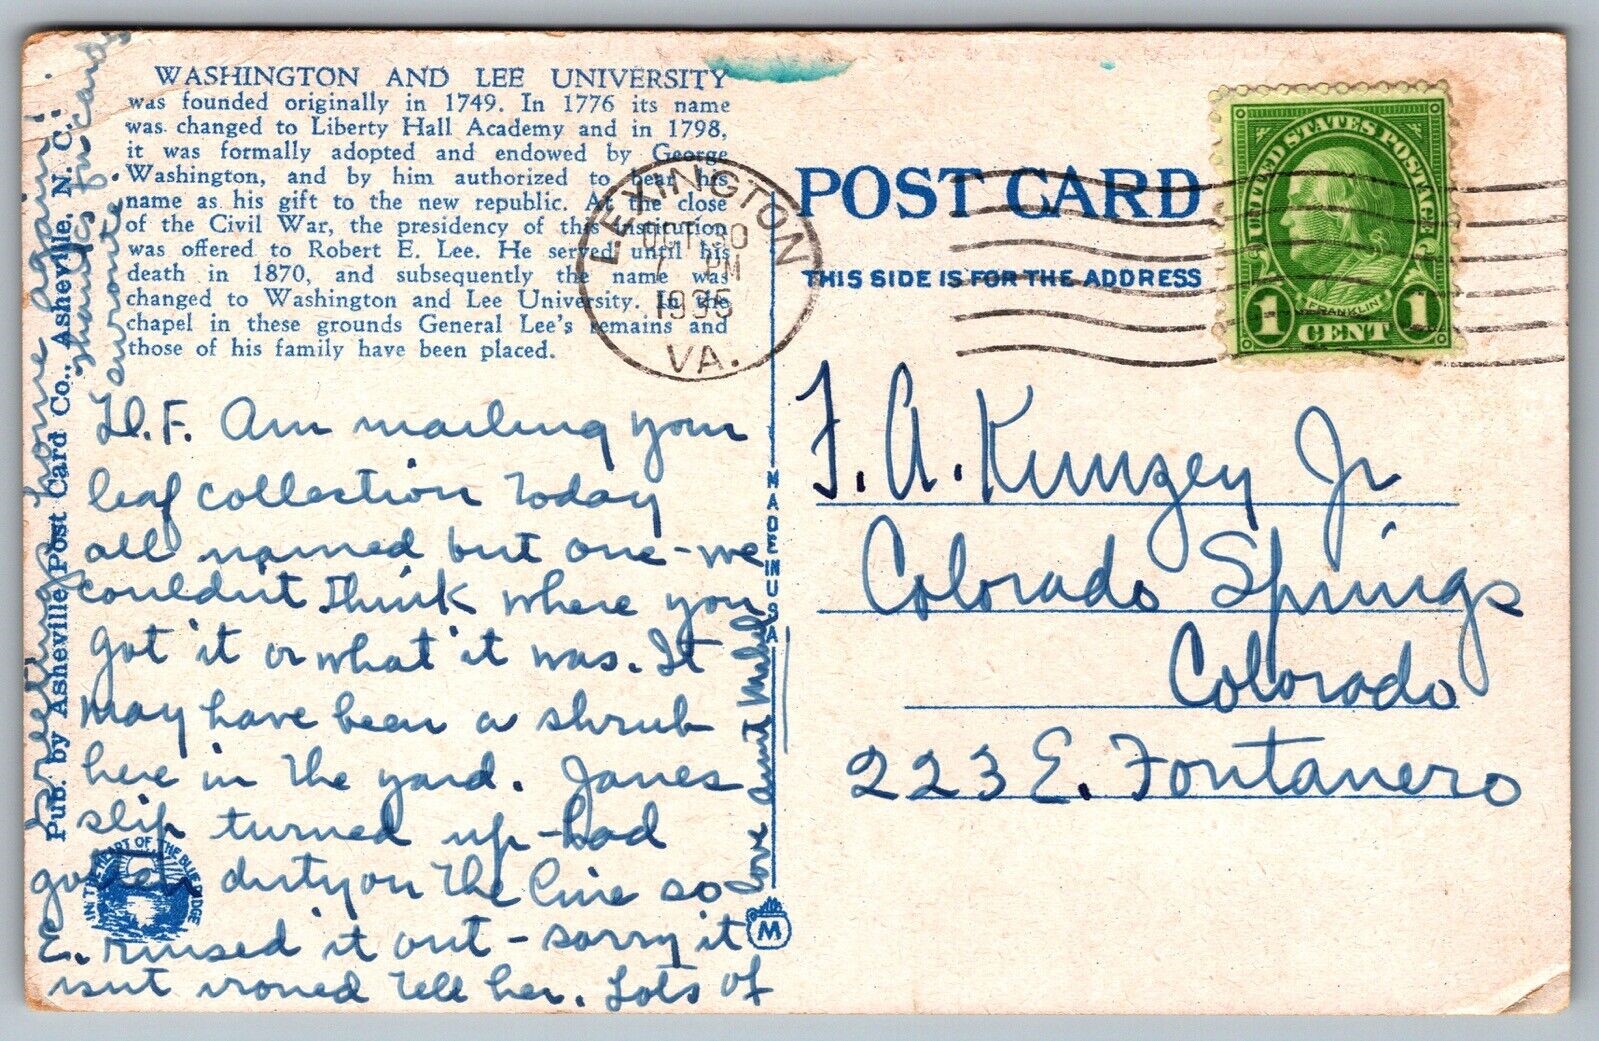 WASHINGTON AND LEE UNIVERSITY
was founded originally in 1749. In 1776 its name
was changed to Liberty Hall Academy and in 1798,
it was formally adopted and endowed by George
Washington, and by him authorized to bear his
name as his gift to the new republic. At the close
of the Civil War, the presidency of this institution
was offered to Robert E. Lee. He served until his
death in 1870, and subsequently the name was
changed to Washington and Lee University. In the
chapel in these grounds General Lee's remains and
those of his family have been placed.
LEXINGTON
OCT 30
PM
1935
VA.
POST CARD
THIS SIDE IS FOR THE ADDRESS
UNITED STATES POSTAGE
FRANKLIN
1 CENT 1
D. F. Am mailing your
leaf collection today
all named but one - we
couldn't think where you
got it or what it was. It
may have been a shrub
here in the yard. Janes
slip turned up - had
gotten dirty on the line so
E. rinsed it out - sorry it
isnt ironed tell her. Lots of
love Aunt Mabel
home again!
Thanks for cards
enroute.
F. A. Kunzey Jr
Colorado Springs
Colorado
223 E. Fontanero
Pub. by Asheville Post Card Co., Asheville, N. C.
MADE IN USA
IN THE HEART OF THE BLUE RIDGE
M